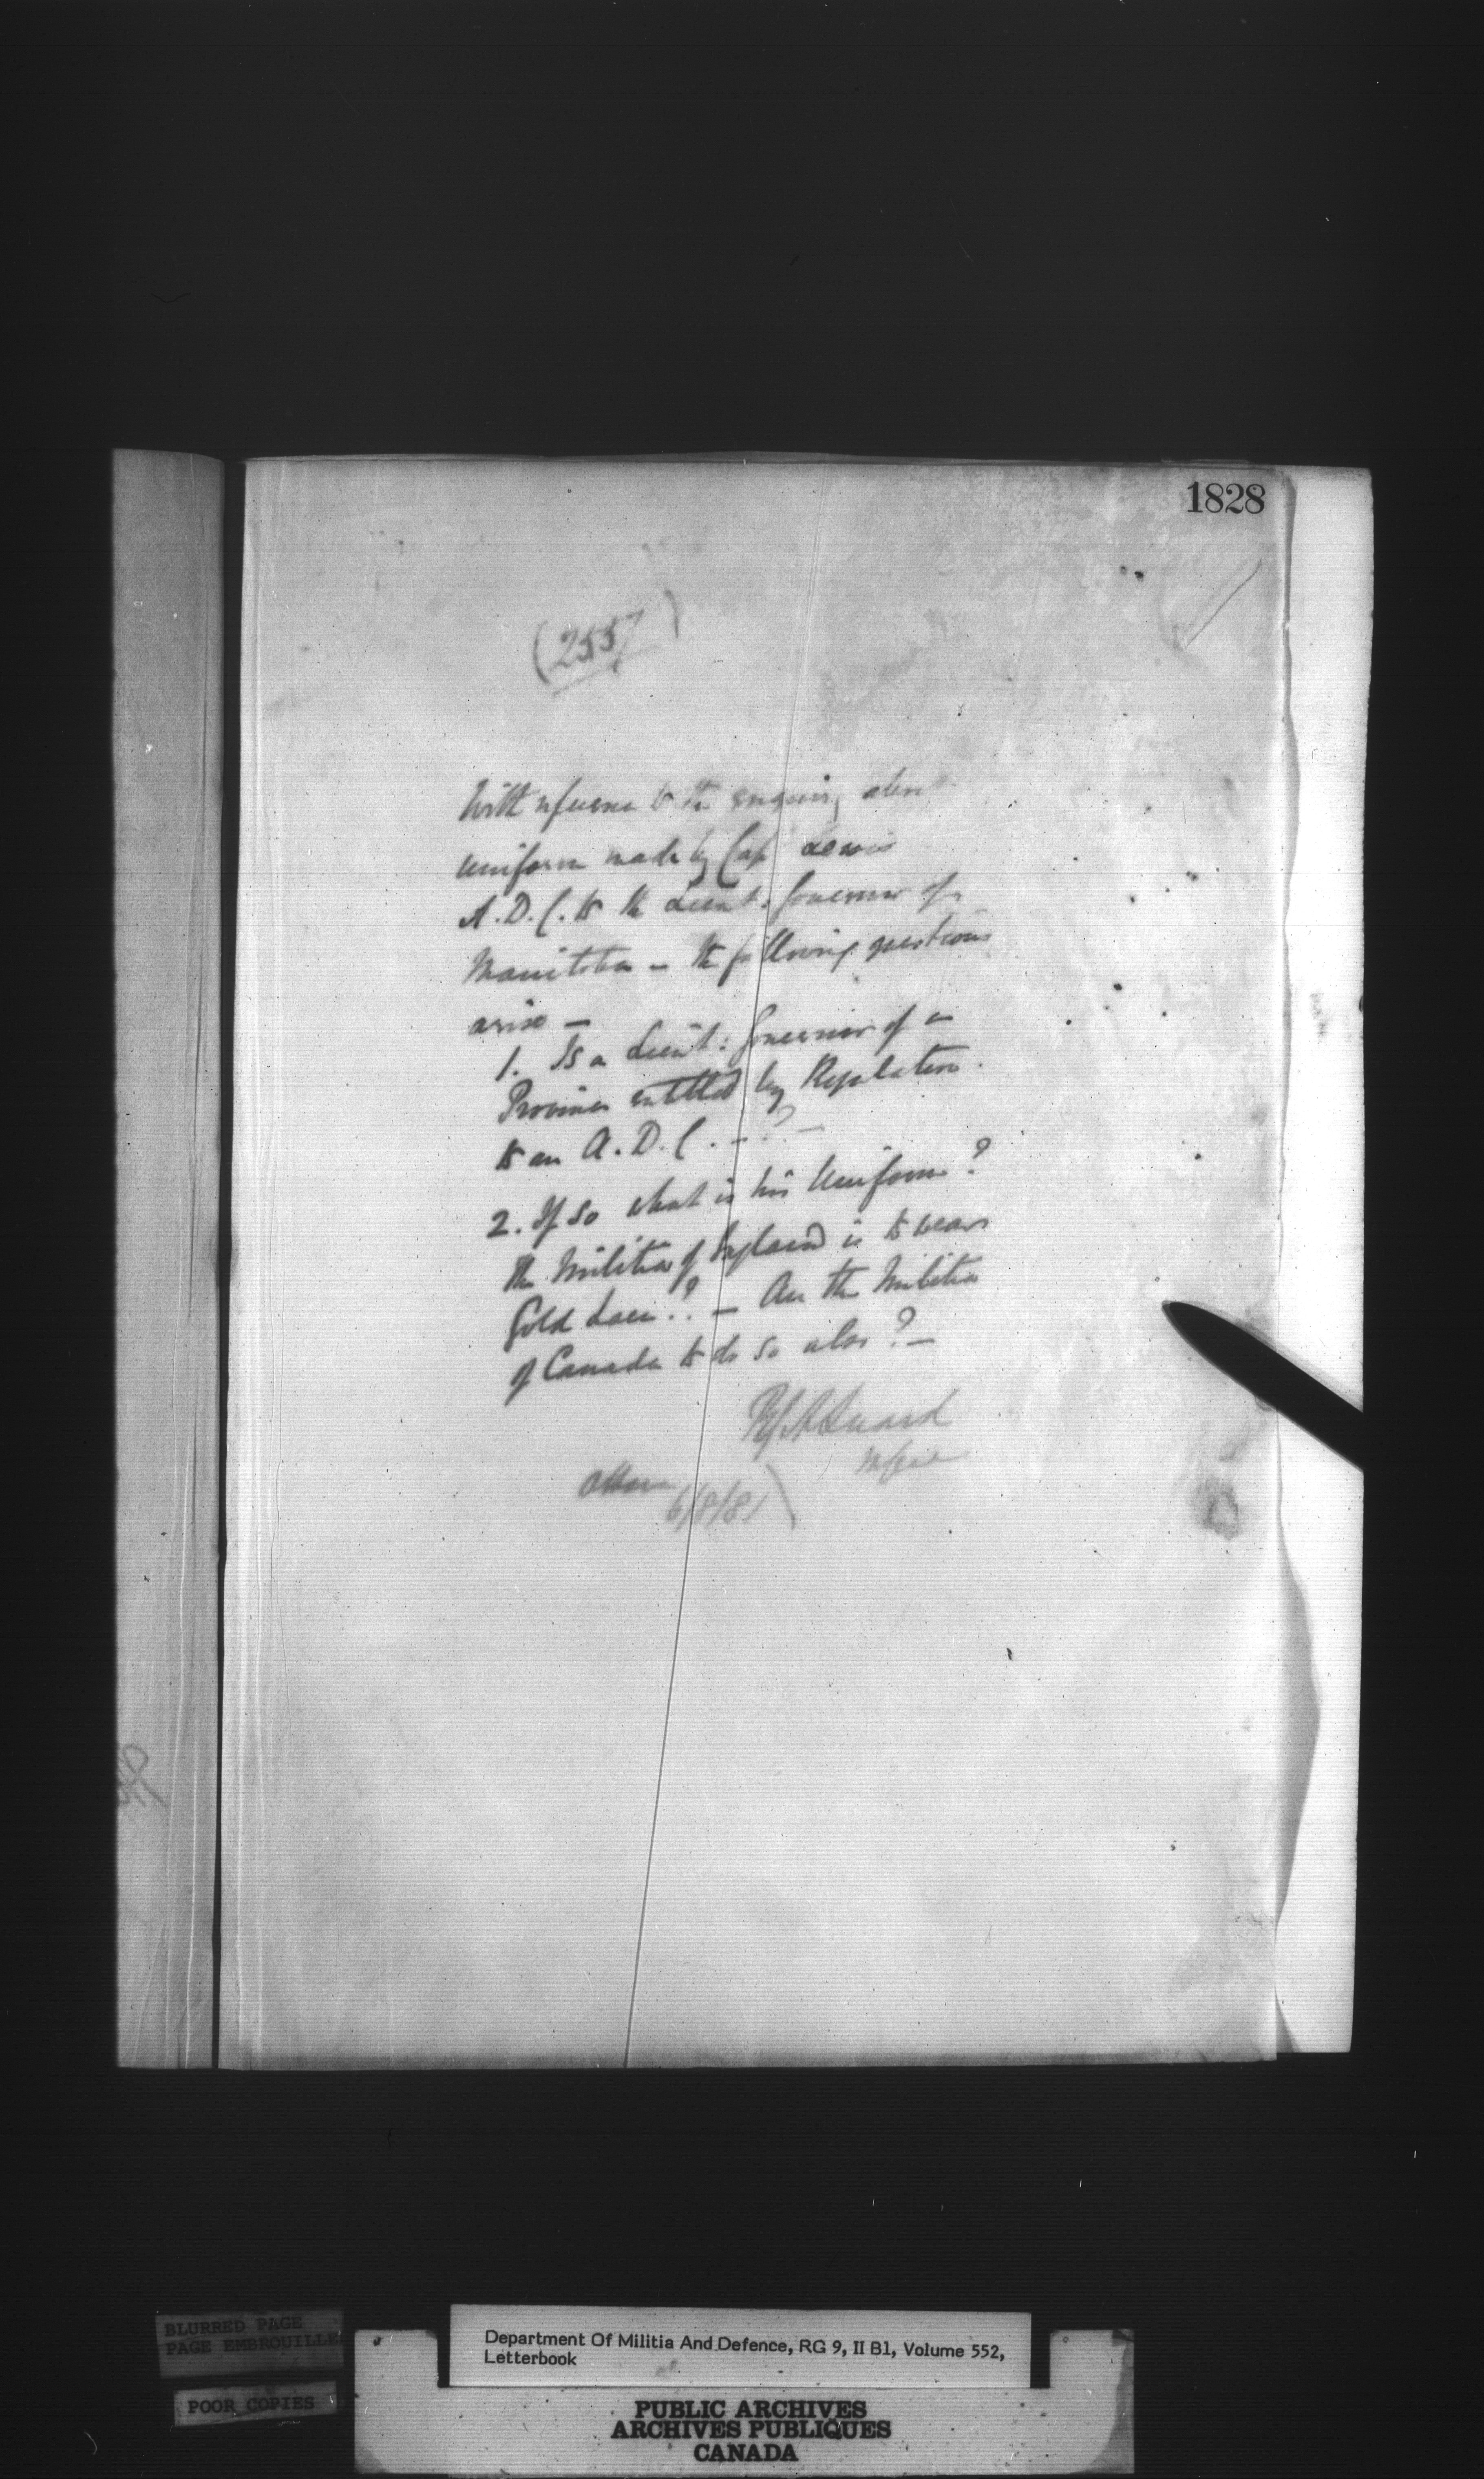 1828
(2557)
With reference to the enquiry about
uniform made by Cap Lewis
A.D.C. to the Lieut: Governor of
Manitoba - the following questions
arise -
1. Is a Lieut: Governor of a
Province entitled by Regulation
to an A.D.C. - ? -
2. If so what is his Uniform?
The Militia of England is to wear
Gold Lace? - Are the Militia
of Canada to do so also? -
Ottawa
6/8/81
BLURRED PAGE
PAGE EMBROUILLE
POOR COPIES
Department Of Militia And Defence, RG 9, II B1, Volume 552,
Letterbook
PUBLIC ARCHIVES
ARCHIVES PUBLIQUES
CANADA